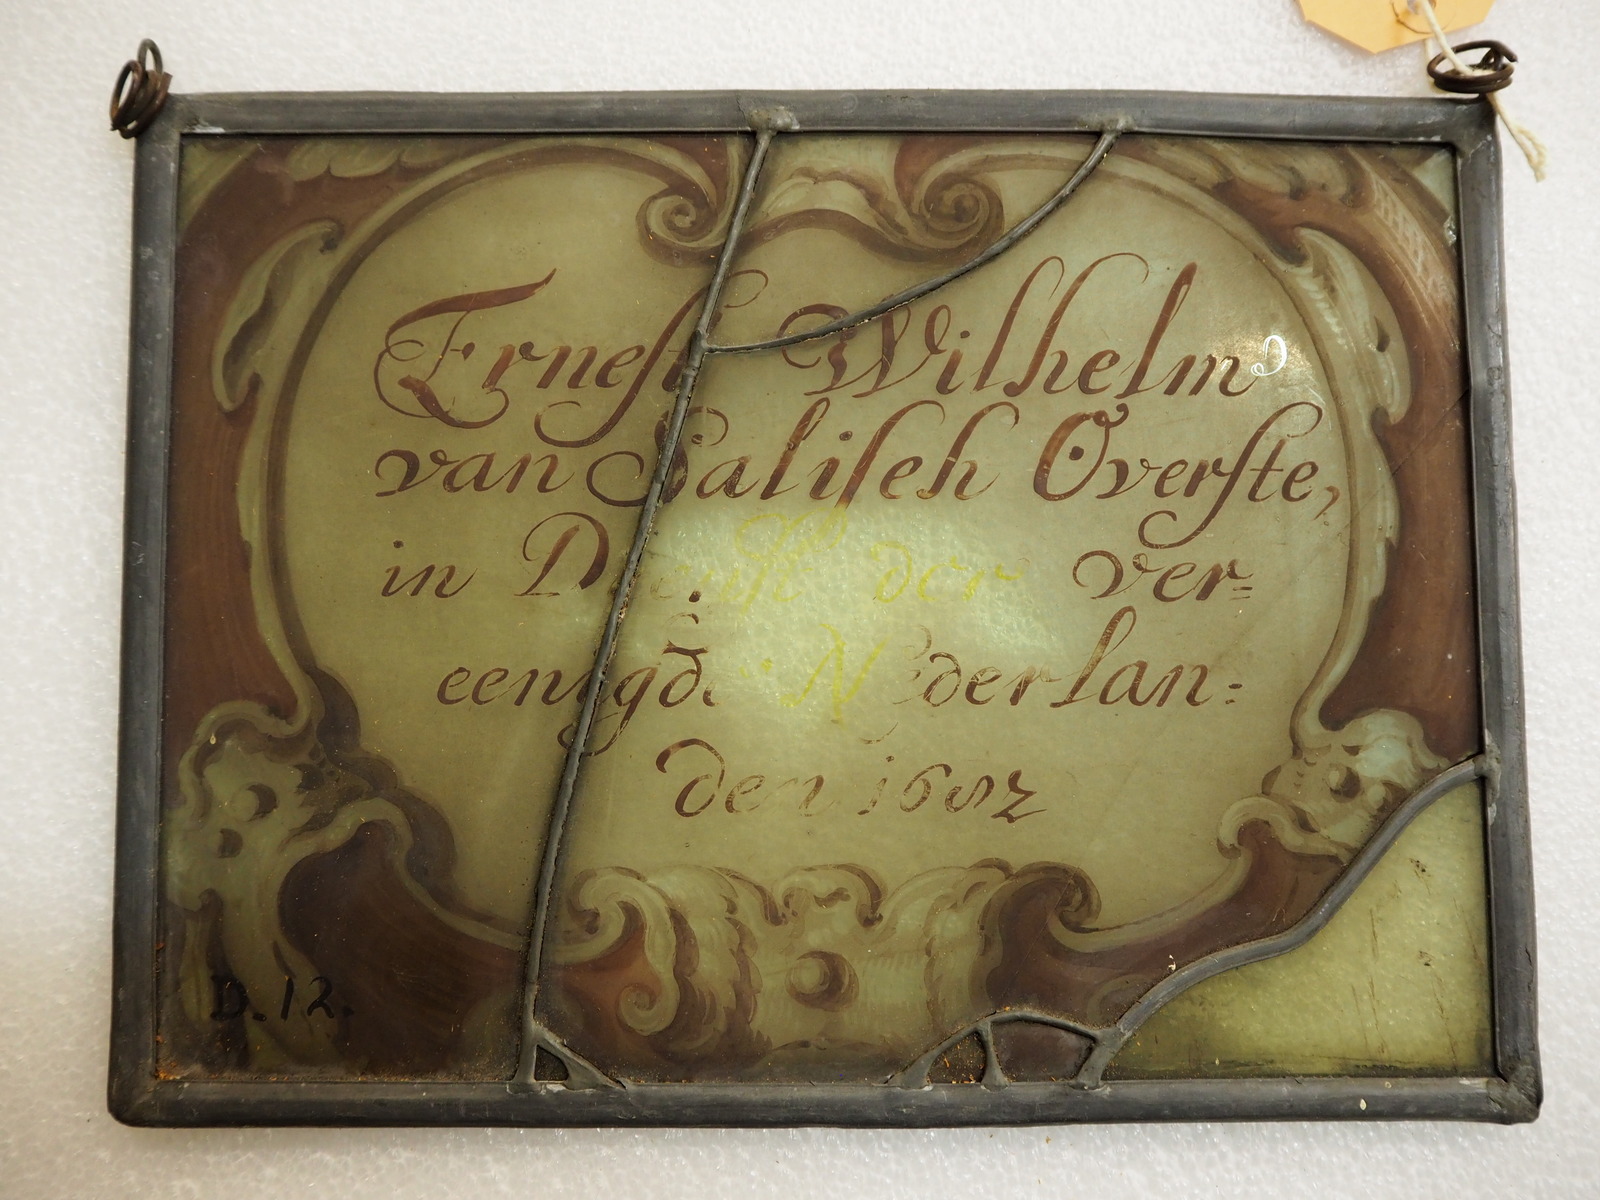 Ernst Wilhelm
van Salisch Overste,
in Dienst der ver=
eenigde Nederlan:
den 1682
D.12.